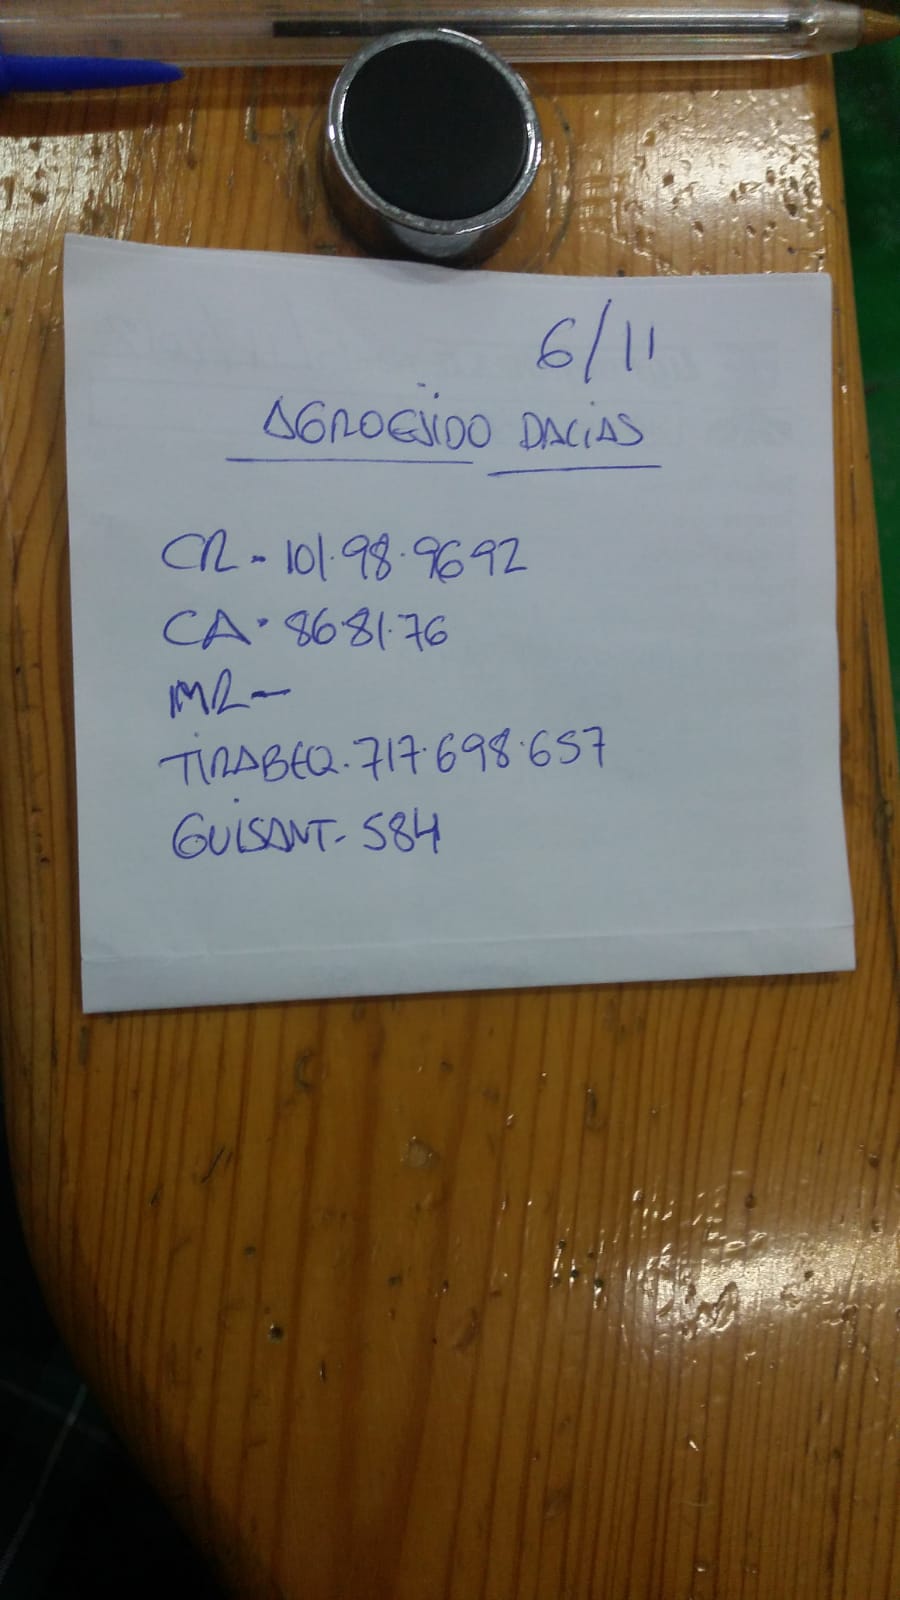 6/11
AGROEJIDO DALIAS
CR - 101.98.9692
CA - 86.81.76
MR -
TIRABEQ. 717.698.657
GUISANT - 584